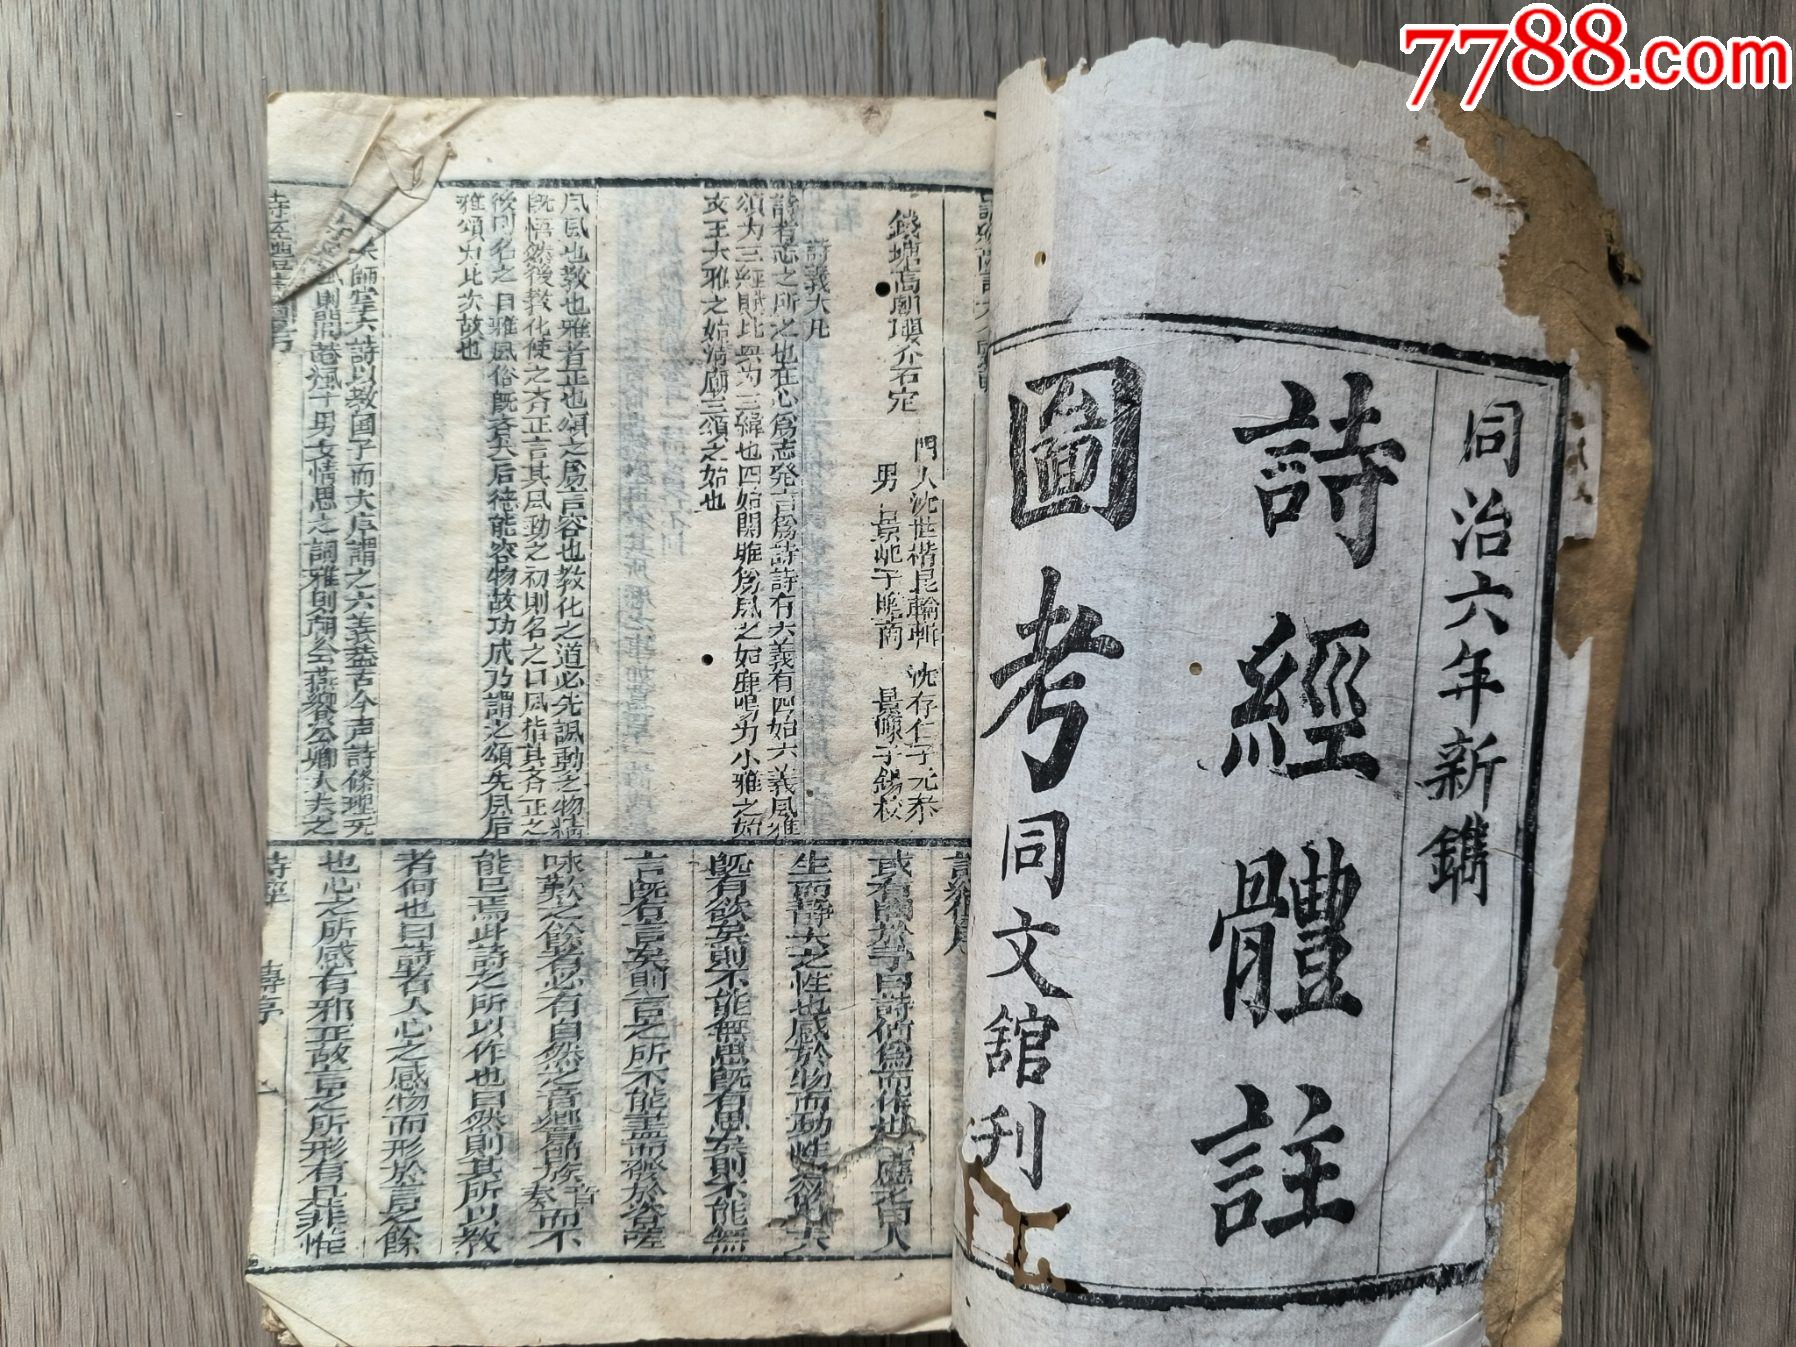 7788.com
同治六年新鐫
詩經體註
圖考同文舘刋
錢塘高朝瓔介石定
門人沈世楷昆輪輯 沈存仁子元叅
詩義大凡
詩者志之所之也在心為志發言為詩詩有六義有四始六義風雅
頌为三經賦比興为三緯也四始関雎為風之始鹿鳴为小雅之始
文王大雅之始清廟三頌之始也
風風也敎也雅者正也頌之為言容也教化之道必先諷動之物情
既悟然後教化使之齐正言其風動之初則名之曰風指其齐正之
後則名之曰雅風俗既齐矣后德能容物故功成乃謂之頌先風后
雅頌为此次故也
大師掌六詩以教国子而大序謂之六義蓋古今声詩條理无
風則閭巷風土男女情思之詞雅則朝会燕饗公卿大夫之
或有問於予曰詩何爲而作也予應之曰人
生而静天之性也感於物而動性之欲也夫
既有欲矣則不能無思既有思矣則不能無
言既有言矣則言之所不能盡而發於咨嗟
咏歎之餘者必有自然之音響節族音奏而不
能已焉此詩之所以作也曰然則其所以教
者何也曰詩者人心之感物而形於言之餘
也心之所感有邪正故言之所形有是非惟
詩經
傳序